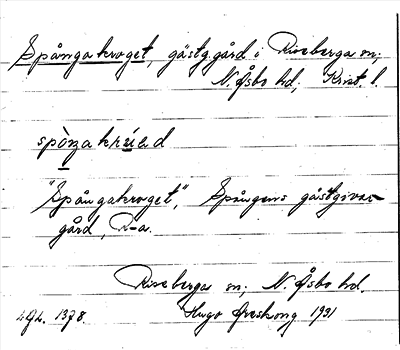 Spångakroget, gästg.gård i Riseberga sn;
N. Åsbo hd; Krist. l.
"Spångakroget", Spångens gästgivar-
gård, R-a.
Riseberga sn; N. Åsbo hd.
1378. Hugo Areskoug 1931